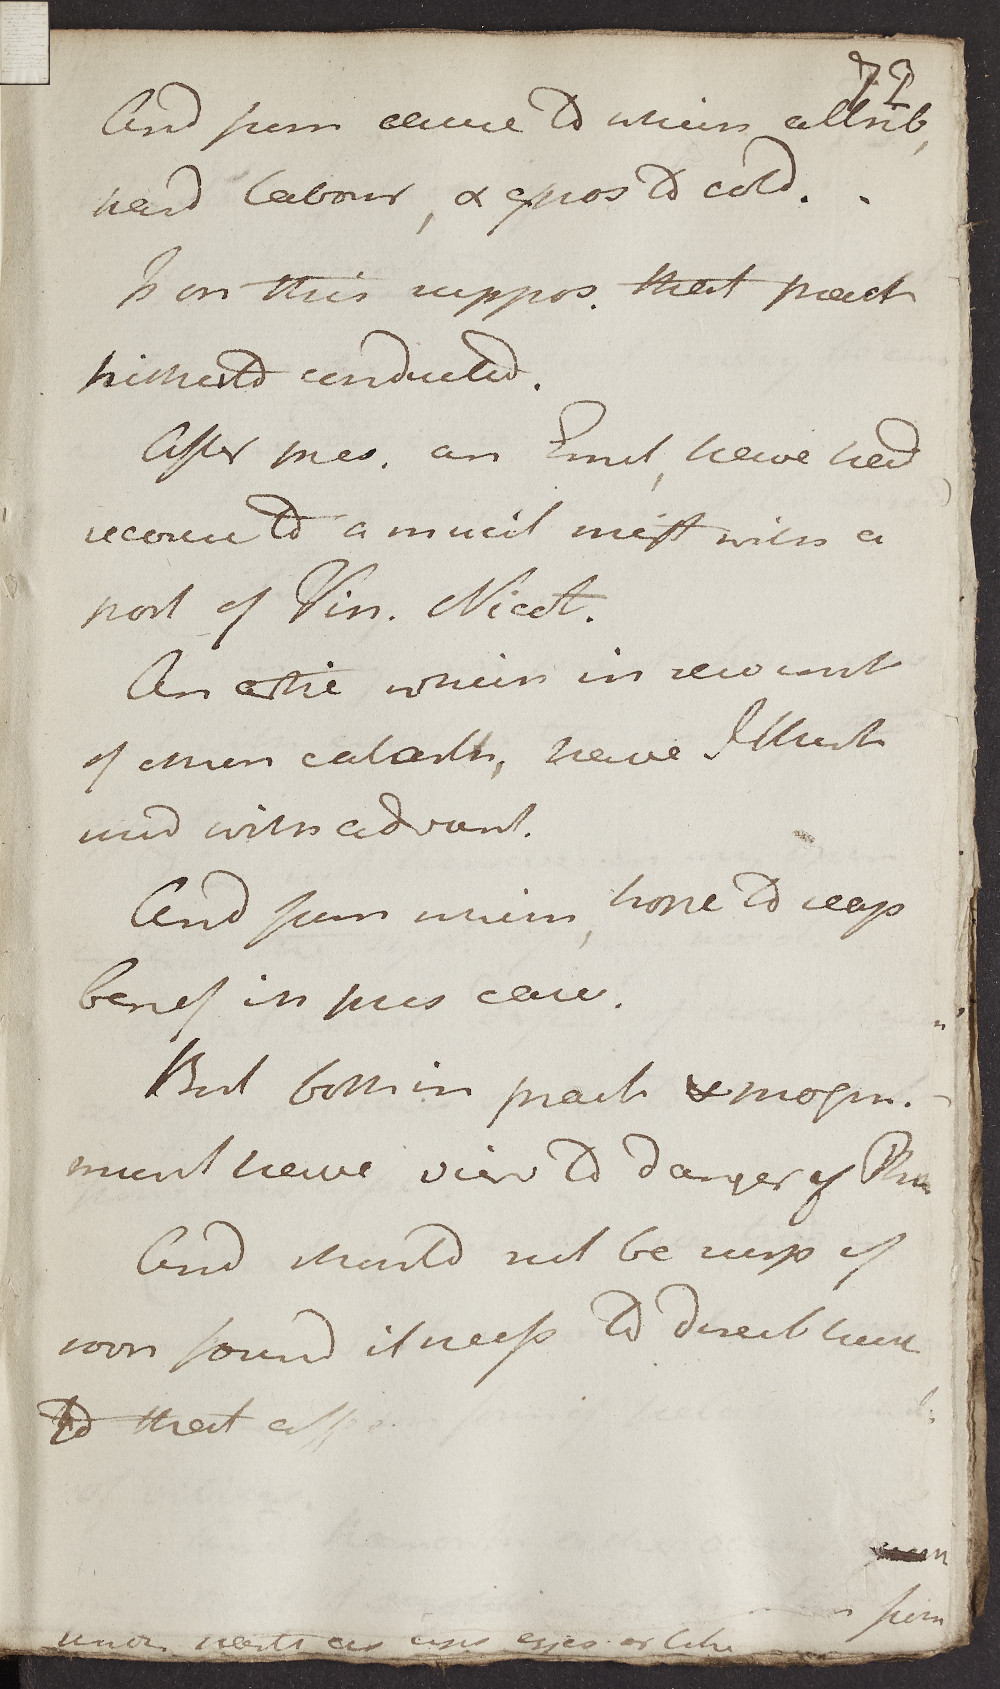 72
And from cause to which attrib,
hard labour, & expos to cold.
Is on this suppos. that pract
hitherto conducted.
After pres. an Emet, have had
recourse to a mucil mixt with a
port of Vin. Nicot.
An artic which in recent
of chron catarrh, have I think
used with advant.
And from which, hope to reap
benef in pres case.
But both in pract & progn.
must have view to danger of Phthis
And should not be surp if
soon found it necess to direct here
to that aff
from